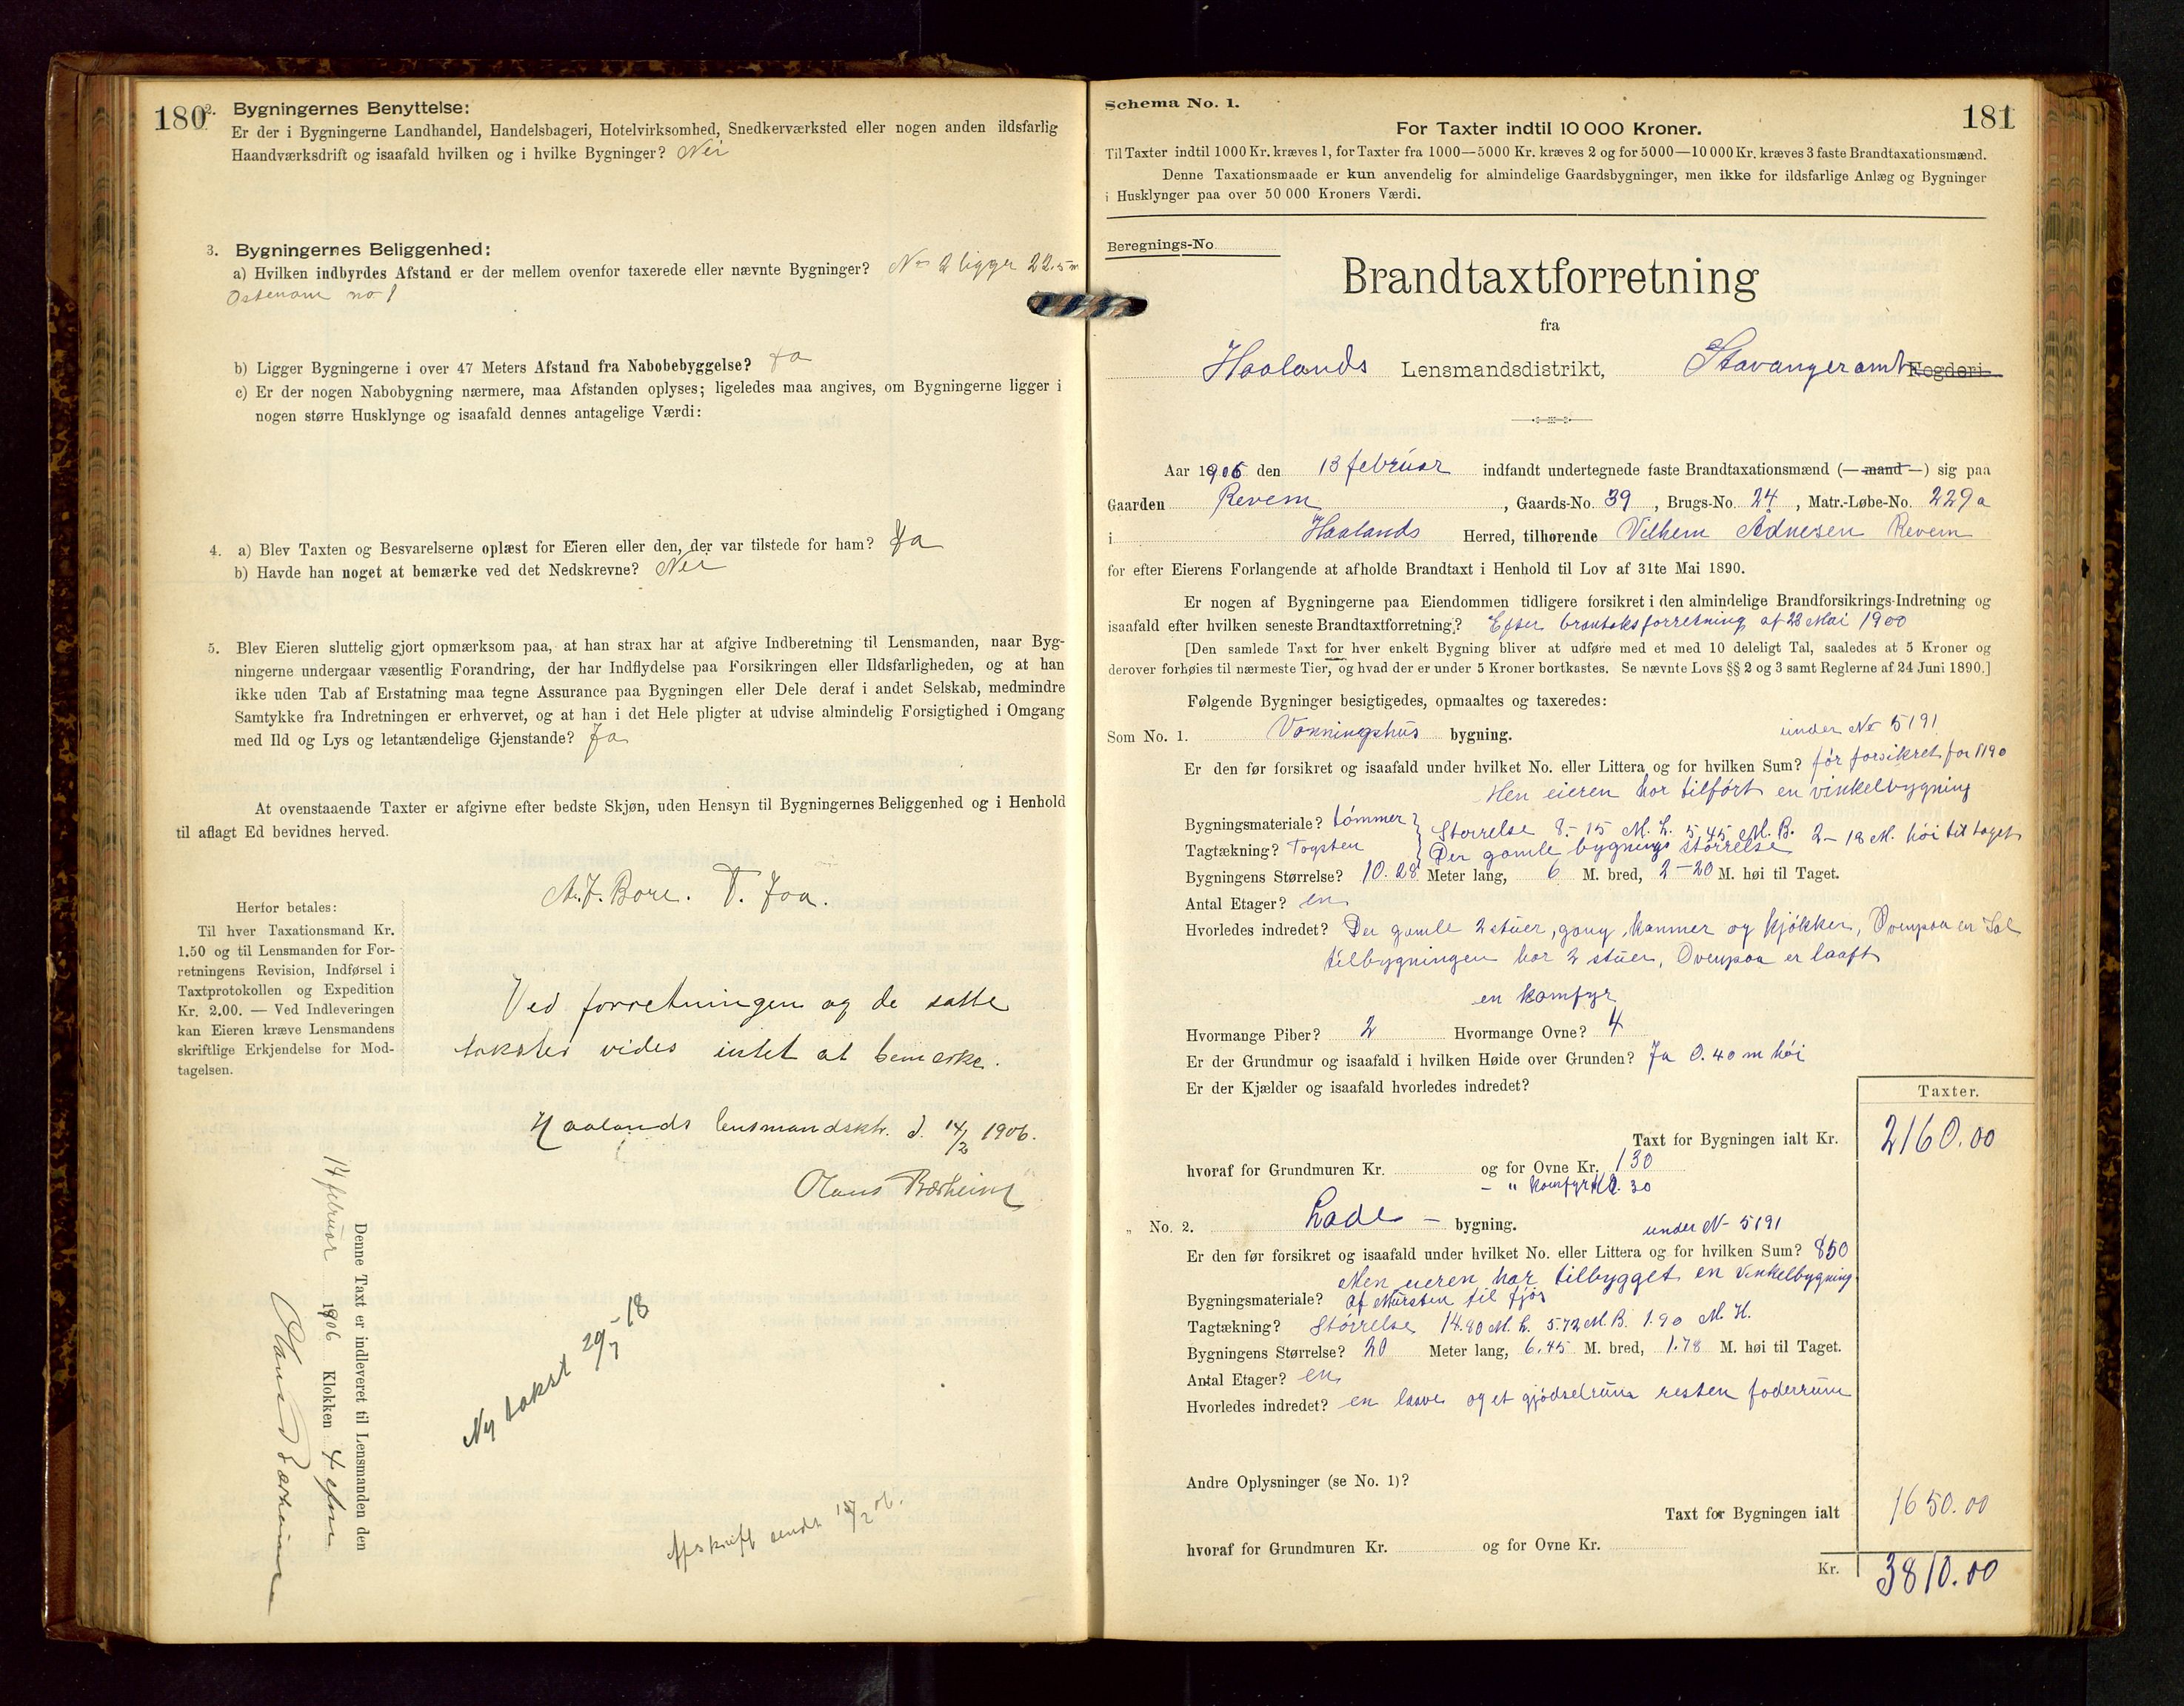 180
2. Bygningernes Benyttelse:
Er der i Bygningerne Landhandel, Handelsbageri, Hotelvirksomhed, Snedkerværksted eller nogen anden ildsfarlig
Haandværksdrift og isaafald hvilken og i hvilke Bygninger? Nei
3. Bygningernes Beliggenhed:
a) Hvilken indbyrdes Afstand er der mellem ovenfor taxerede eller nævnte Bygninger? No 2 ligger 22.5 m
Ostenom no 1
b) Ligger Bygningerne i over 47 Meters Afstand fra Nabobebyggelse? Ja
c) Er der nogen Nabobygning nærmere, maa Afstanden oplyses; ligeledes maa angives, om Bygningerne ligger i
nogen større Husklynge og isaafald dennes antagelige Værdi:
4. a) Blev Taxten og Besvarelserne oplæst for Eieren eller den, der var tilstede for ham? Ja
b) Havde han noget at bemærke ved det Nedskrevne? Nei
5. Blev Eieren sluttelig gjort opmærksom paa, at han strax har at afgive Indberetning til Lensmanden, naar Byg-
ningerne undergaar væsentlig Forandring, der har Indflydelse paa Forsikringen eller Ildsfarligheden, og at han
ikke uden Tab af Erstatning maa tegne Assurance paa Bygningen eller Dele deraf i andet Selskab, medmindre
Samtykke fra Indretningen er erhvervet, og at han i det Hele pligter at udvise almindelig Forsigtighed i Omgang
med Ild og Lys og letantændelige Gjenstande? Ja
At ovenstaaende Taxter er afgivne efter bedste Skjøn, uden Hensyn til Bygningernes Beliggenhed og i Henhold
til aflagt Ed bevidnes herved.
Bore. T. Joa.
Herfor betales:
Til hver Taxationsmand Kr.
1.50 og til Lensmanden for For-
retningens Revision, Indførsel i
Taxtprotokollen og Expedition
Kr. 2.00. — Ved Indleveringen
kan Eieren kræve Lensmandens
skriftlige Erkjendelse for Mod-
tagelsen.
Ved forretningen og de satte
takster vides intet at bemerke.
Haalands lensmandsktr. d. 14/2 1906.
Olaus Bærheim
Denne Taxt er indleveret til Lensmanden den
14 februar 1906 Klokken 4 efm
Olaus Bærheim
Ny takst 29/7-18
Afskrift sendt 15/2 06.
Schema No. 1.
181
For Taxter indtil 10 000 Kroner.
Til Taxter indtil 1000 Kr. kræves 1, for Taxter fra 1000—5000 Kr. kræves 2 og for 5000—10 000 Kr. kræves 3 faste Brandtaxationsmænd.
Denne Taxationsmaade er kun anvendelig for almindelige Gaardsbygninger, men ikke for ildsfarlige Anlæg og Bygninger
i Husklynger paa over 50 000 Kroners Værdi.
Beregnings-No
Brandtaxtforretning
fra
Haalands Lensmandsdistrikt, Stavanger amt Fogderi
Aar 1906 den 13 februar indfandt undertegnede faste Brandtaxationsmænd (— mand —) sig paa
Gaarden Revem, Gaards-No. 39, Brugs-No. 24, Matr.-Løbe-No. 229a
i Haalands Herred, tilhørende Vilhem Adnesen Revem
for efter Eierens Forlangende at afholde Brandtaxt i Henhold til Lov af 31te Mai 1890.
Er nogen af Bygningerne paa Eiendommen tidligere forsikret i den almindelige Brandforsikrings-Indretning og
isaafald efter hvilken seneste Brandtaxtforretning? Efter brantaksforretning af 28 Mai 1900
[Den samlede Taxt for hver enkelt Bygning bliver at udføre med et med 10 deleligt Tal, saaledes at 5 Kroner og
derover forhøies til nærmeste Tier, og hvad der er under 5 Kroner bortkastes. Se nævnte Lovs §§ 2 og 3 samt Reglerne af 24 Juni 1890.]
Følgende Bygninger besigtigedes, opmaaltes og taxeredes:
Som No. 1. Vonningshus bygning. under No 5191
Er den før forsikret og isaafald under hvilket No. eller Littera og for hvilken Sum? før forsikret for 1190
Men eieren har tilført en vinkelbygning
Bygningsmateriale? tømmer Storrelse 8-15 M. L. 5,45 M. B. 2-18 M. høi til taget
Tagtækning? Tagsten Der gamle bygnings størrelse
Bygningens Størrelse? 10.28 Meter lang, 6 M. bred, 2-20 M. høi til Taget.
Antal Etager? en
Hvorledes indredet? Der gamle 2 stuer, gang, kammer og kjøkken, Ovenpaa er Sal
tilbygningen har 2 stuer, Ovenpaa er laaft
en komfyr
Hvormange Piber? 2 Hvormange Ovne? 4
Er der Grundmur og isaafald i hvilken Høide over Grunden? Ja 0.40 m høi
Er der Kjælder og isaafald hvorledes indredet?
Taxter.
Taxt for Bygningen ialt Kr. 2160.00
hvoraf for Grundmuren Kr. og for Ovne Kr. 130
- " komfyr 30
" No. 2. Lade - bygning. under N- 5191
Er den før forsikret og isaafald under hvilket No. eller Littera og for hvilken Sum? 850
Men eieren har tilbygget en vinkelbygning
Bygningsmateriale? af Mursten til fjøs
Tagtækning? Størrelse 14.80 M. L. 5.72 M. B. 1.90 M. H.
Bygningens Størrelse? 20 Meter lang, 6.45 M. bred, 1.78 M. høi til Taget.
Antal Etager? en
Hvorledes indredet? en laave og et gjødselrum resten foderrum
Andre Oplysninger (se No. 1)?
Taxt for Bygningen ialt 1650.00
hvoraf for Grundmuren Kr. og for Ovne Kr.
Kr. 3810.00